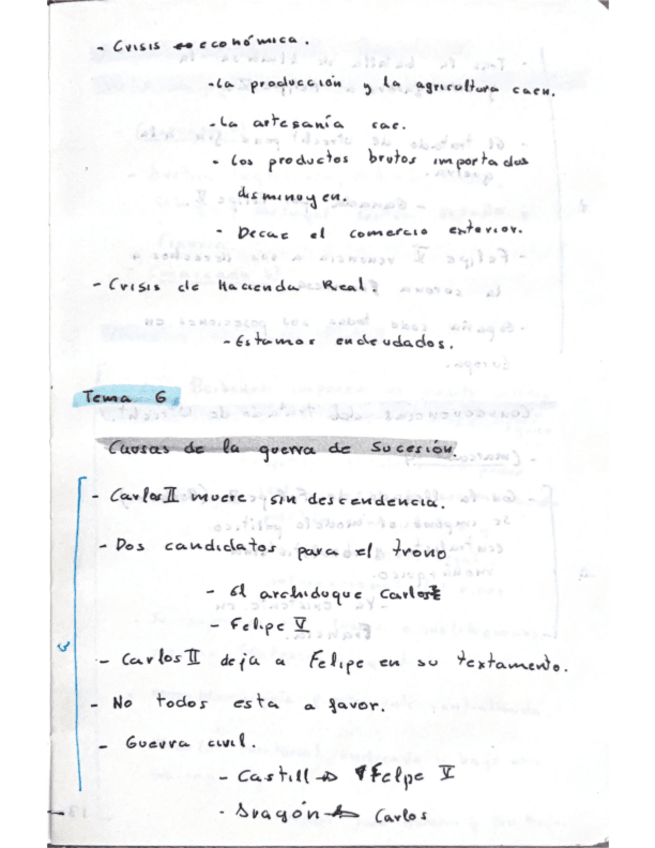 - Crisis económica.
- La producción y la agricultura caen.
- La artesanía cae.
- Los productos brutos importados
disminuyen.
- Decae el comercio exterior.
- Crisis de Hacienda Real.
- Estamos endeudados.
Tema 6
Causas de la guerra de Sucesión.
- Carlos II muere sin descendencia.
- Dos candidatos para el trono
- El archiduque Carlos
- Felipe V
- Carlos II deja a Felipe en su textamento.
- No todos esta a favor.
- Guerra civil.
- Castill → Felpe V
- Aragón → Carlos